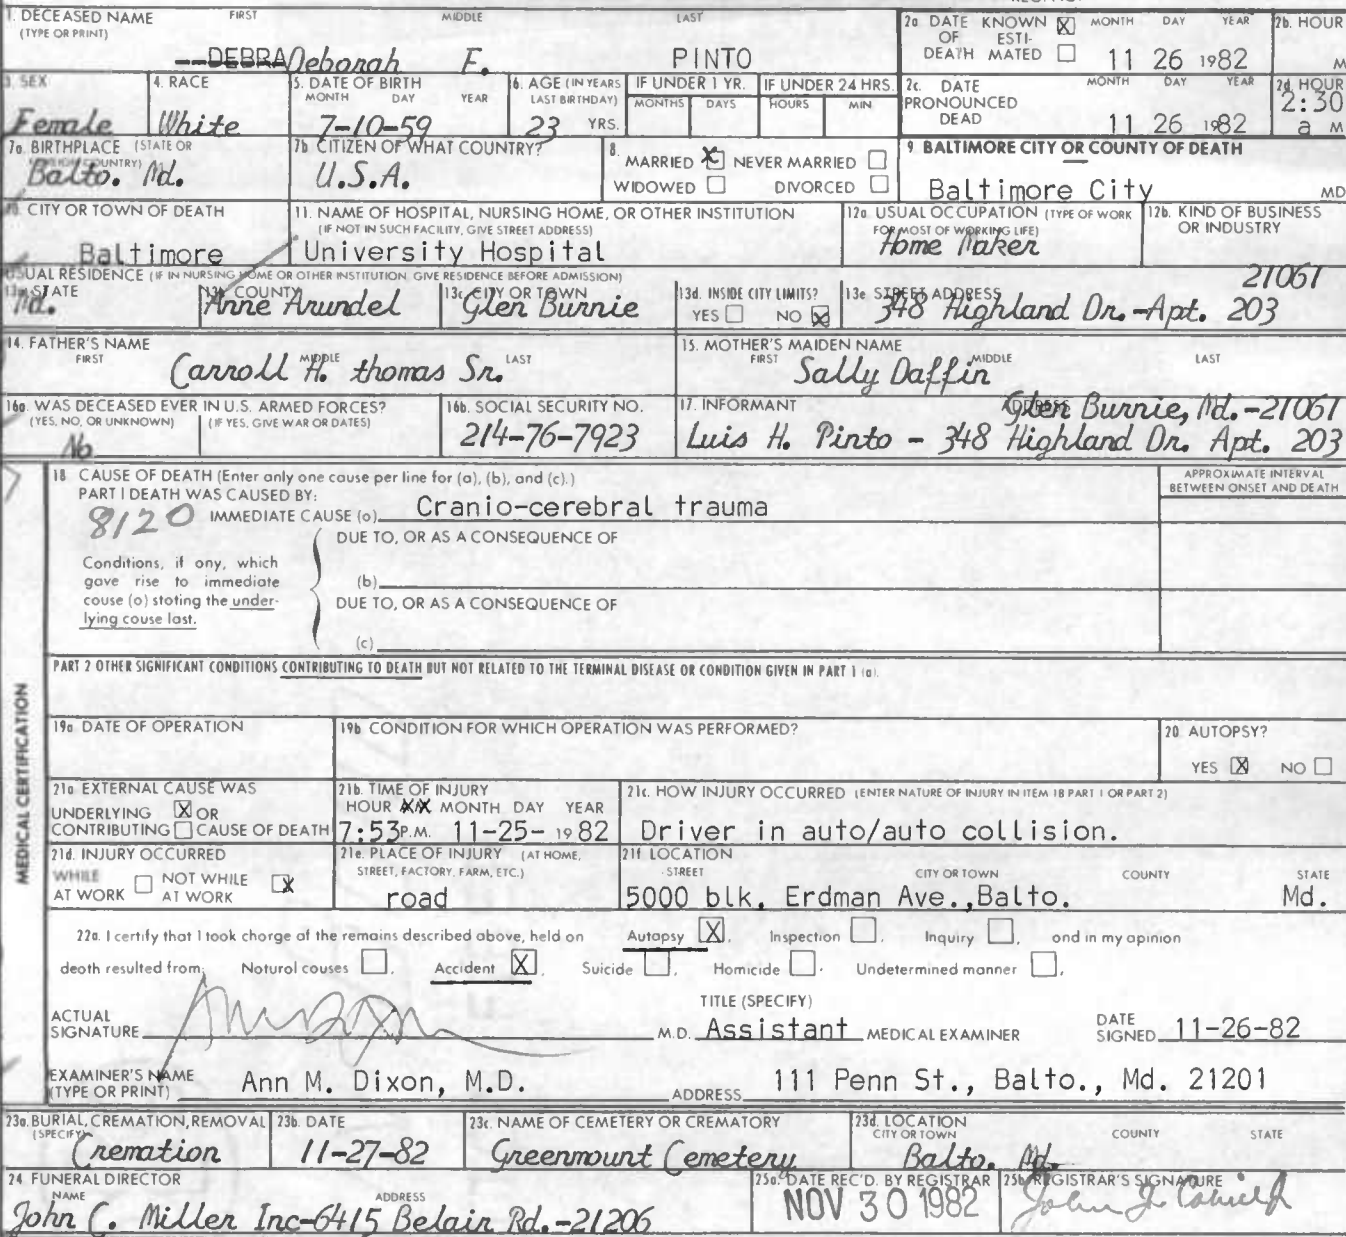 1. DECEASED NAME FIRST MIDDLE LAST
(TYPE OR PRINT)
DEBRA Deborah F. PINTO
2a DATE OF DEATH KNOWN X ESTIMATED MONTH DAY YEAR
11 26 1982
2b. HOUR
M
3. SEX
Female
4. RACE
White
5. DATE OF BIRTH
MONTH DAY YEAR
7-10-59
6. AGE (IN YEARS LAST BIRTHDAY)
23 YRS.
IF UNDER 1 YR.
MONTHS DAYS
IF UNDER 24 HRS.
HOURS MIN
2c. DATE PRONOUNCED DEAD MONTH DAY YEAR
11 26 1982
2d HOUR
2:30
a M
7a. BIRTHPLACE (STATE OR
COUNTRY)
Balto. Md.
7b CITIZEN OF WHAT COUNTRY?
U.S.A.
8.
MARRIED X NEVER MARRIED
WIDOWED DIVORCED
9. BALTIMORE CITY OR COUNTY OF DEATH
Baltimore City MD
10. CITY OR TOWN OF DEATH
Baltimore
11. NAME OF HOSPITAL, NURSING HOME, OR OTHER INSTITUTION
(IF NOT IN SUCH FACILITY, GIVE STREET ADDRESS)
University Hospital
12a USUAL OCCUPATION (TYPE OF WORK
FOR MOST OF WORKING LIFE)
Home Maker
12b. KIND OF BUSINESS
OR INDUSTRY
USUAL RESIDENCE (IF IN NURSING HOME OR OTHER INSTITUTION GIVE RESIDENCE BEFORE ADMISSION)
13a STATE
Md.
13b COUNTY
Anne Arundel
13c CITY OR TOWN
Glen Burnie
13d. INSIDE CITY LIMITS?
YES NO X
13e STREET ADDRESS
21061
348 Highland Dr.-Apt. 203
14. FATHER'S NAME
FIRST MIDDLE LAST
Carroll H. thomas Sr.
15. MOTHER'S MAIDEN NAME
FIRST MIDDLE LAST
Sally Daffin
16a. WAS DECEASED EVER IN U.S. ARMED FORCES?
(YES, NO, OR UNKNOWN) (IF YES, GIVE WAR OR DATES)
No
16b. SOCIAL SECURITY NO.
214-76-7923
17. INFORMANT ADDRESS
Glen Burnie, Md.-21061
Luis H. Pinto - 348 Highland Dr. Apt. 203
18 CAUSE OF DEATH (Enter only one cause per line for (a), (b), and (c).)
PART I DEATH WAS CAUSED BY:
8120 IMMEDIATE CAUSE (a) Cranio-cerebral trauma
APPROXIMATE INTERVAL
BETWEEN ONSET AND DEATH
DUE TO, OR AS A CONSEQUENCE OF
Conditions, if any, which
gave rise to immediate
cause (a) stating the under-
lying cause last.
(b)
DUE TO, OR AS A CONSEQUENCE OF
(c)
PART 2 OTHER SIGNIFICANT CONDITIONS CONTRIBUTING TO DEATH BUT NOT RELATED TO THE TERMINAL DISEASE OR CONDITION GIVEN IN PART 1 (a).
MEDICAL CERTIFICATION
19a DATE OF OPERATION
19b CONDITION FOR WHICH OPERATION WAS PERFORMED?
20 AUTOPSY?
YES X NO
21a EXTERNAL CAUSE WAS
UNDERLYING X OR
CONTRIBUTING CAUSE OF DEATH
21b. TIME OF INJURY
HOUR MONTH DAY YEAR
7:53 P.M. 11-25- 1982
21c. HOW INJURY OCCURRED (ENTER NATURE OF INJURY IN ITEM 18 PART 1 OR PART 2)
Driver in auto/auto collision.
21d. INJURY OCCURRED
WHILE AT WORK NOT WHILE AT WORK X
21e. PLACE OF INJURY (AT HOME,
STREET, FACTORY, FARM, ETC.)
road
21f LOCATION
STREET CITY OR TOWN COUNTY STATE
5000 blk. Erdman Ave.,Balto. Md.
22a. I certify that I took charge of the remains described above, held on Autopsy X, Inspection , Inquiry , and in my opinion
death resulted from: Natural causes , Accident X, Suicide , Homicide . Undetermined manner ,
ACTUAL
SIGNATURE
TITLE (SPECIFY)
M.D. Assistant MEDICAL EXAMINER
DATE
SIGNED 11-26-82
EXAMINER'S NAME
(TYPE OR PRINT) Ann M. Dixon, M.D.
ADDRESS 111 Penn St., Balto., Md. 21201
23a. BURIAL, CREMATION, REMOVAL
(SPECIFY)
Cremation
23b. DATE
11-27-82
23c. NAME OF CEMETERY OR CREMATORY
Greenmount Cemetery
23d. LOCATION
CITY OR TOWN COUNTY STATE
Balto. Md.
24 FUNERAL DIRECTOR
NAME ADDRESS
John C. Miller Inc-6415 Belair Rd.-21206
25a. DATE REC'D. BY REGISTRAR
NOV 30 1982
25b REGISTRAR'S SIGNATURE
John J.